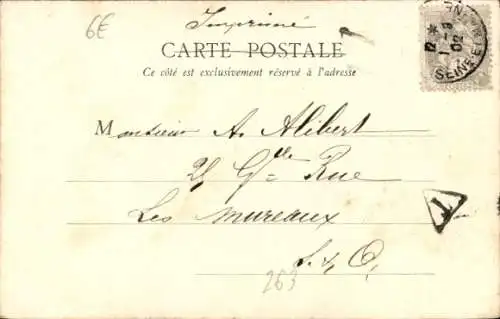 6€
Imprimé
CARTE POSTALE
Ce côté est exclusivement réservé à l'adresse
12 *
1 - 3
02
SEINE
Monsieur A. Alibert
25 Gde Rue
Les Mureaux
S. & O.
T
263